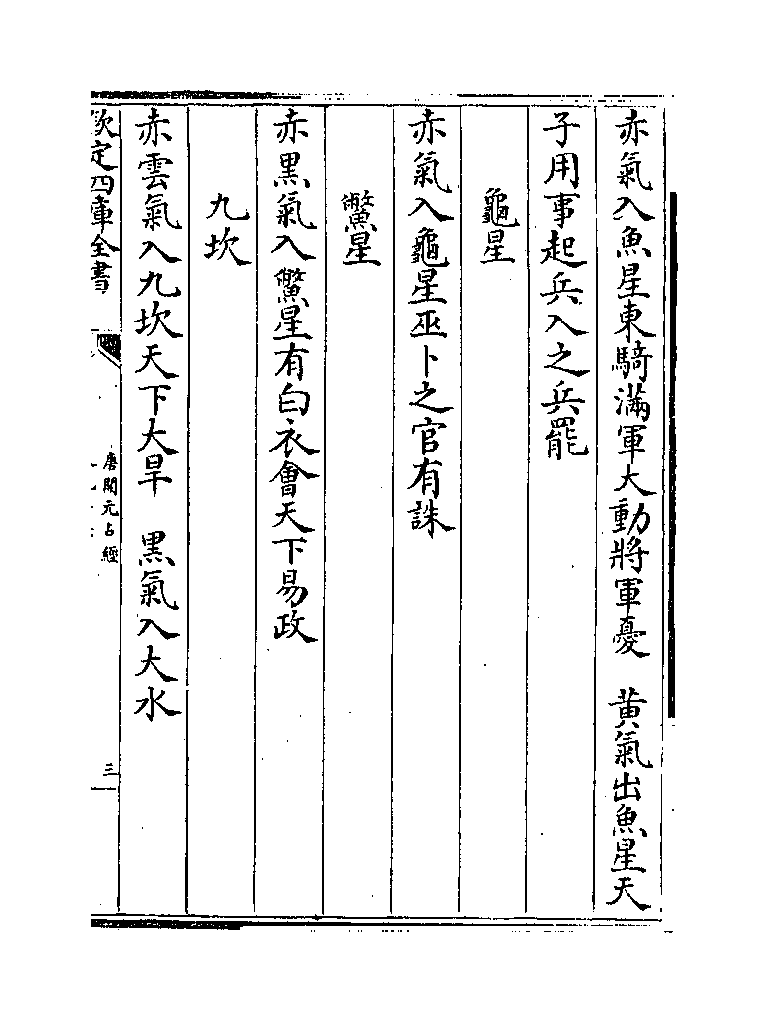 赤氣入魚星東騎滿軍大動將軍憂　黄氣出魚星天
子用事起兵入之兵罷
龜星
赤氣入龜星巫卜之官有誅
鱉星
赤黑氣入鱉星有白衣會天下易政
九坎
赤雲氣入九坎天下大旱　黒氣入大水
欽定四庫全書
唐開元占經
三